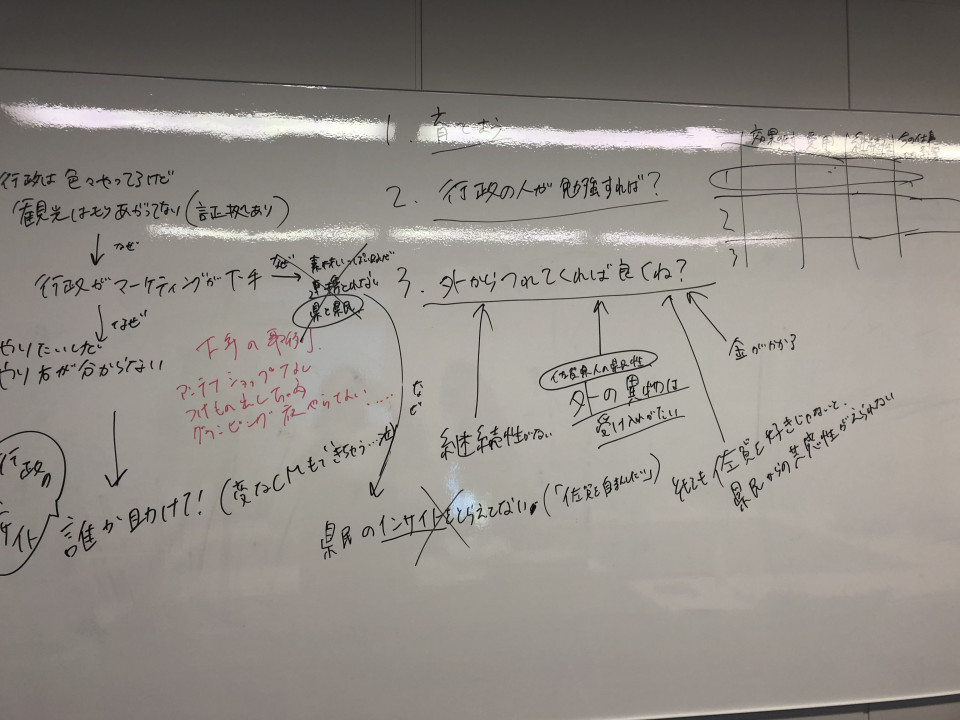 行政は色々やってるけど
観光はもりあがってない(証拠あり)
なぜ
行政がマーケティングが下手
なぜ
県と県民
なぜ
やりたいけど
やり方が分からない
下手の
アンテナショップなし
つけもの出しちゃう
グランピング 夜やらない.....
なぜ
行政の
サイト
誰か助けて! (変なCMもできちゃう…泣)
県民のインサイトをとらえてない。(「佐賀を自まんしたい」)
1. 育てよう
2. 行政の人が勉強すれば?
3. 外からつれてくれば良くね?
継続性がない
佐賀県人の県民性
外の異物は
受け入れがたい
金がかかる
そもそも佐賀を好きじゃないと、
県民からの共感性がえられない
効果 費用 継続性
1
2
3